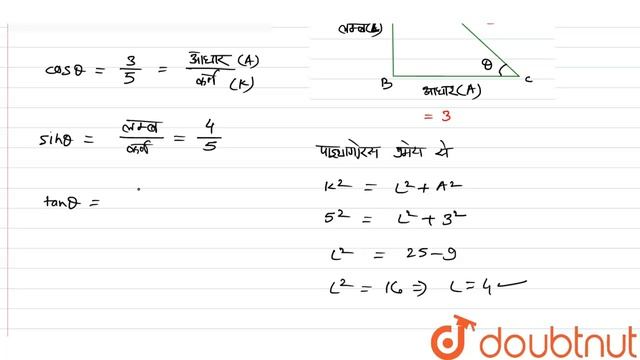 cosθ = 3/5 = आधार (A)/कर्ण (K)
sinθ = लम्ब/कर्ण = 4/5
tanθ =
लम्ब(L)
B
θ
C
आधार(A)
= 3
पाइथागोरस प्रमेय से
K² = L² + A²
5² = L² + 3²
L² = 25 - 9
L² = 16 ⇒ L = 4 ✓
doubtnut